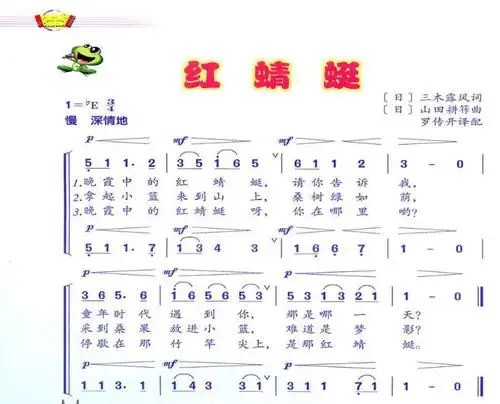 红蜻蜓
1=♭E 3/4
慢 深情地
〔日〕三木露风词
〔日〕山田耕筰曲
罗传开译配
p mf p
5 1 1. 2 | 3 5 1 6 5
1.晚霞中的红蜻蜓,请你告诉我,
2.拿起小篮来到山上,桑树绿如荫,
3.晚霞中的红蜻蜓呀,你在哪里哟?
5 1 1. 7 | 1 3 4 3 | 1 6 6 7 | 1 - 0
p mf p
3 6 5. 6 | 1 6 5 6 5 3 | 5 3 1 3 2 1 | 1 - 0
童年时代遇到你,那是哪一天?
采到桑果放进小篮,难道是梦影?
停歇在那竹竿尖上,是那红蜻蜓。
p mf p
1 1 3. 4 | 1 4 3 3 1 | 3 1 1 | 1 - 0